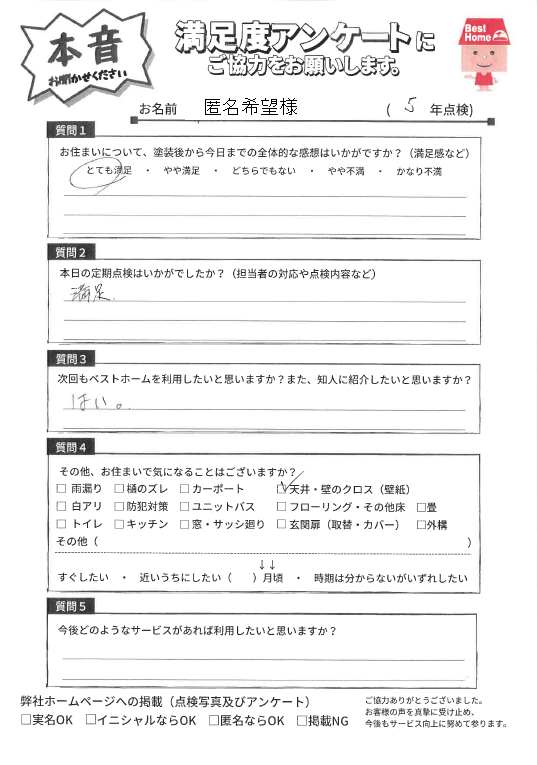 本音
お聞かせください
満足度アンケートに
ご協力をお願いします。
Best Home
お名前 匿名希望様 ( 5 年点検)
質問1
お住まいについて、塗装後から今日までの全体的な感想はいかがですか?（満足感など）
とても満足 ・ やや満足 ・ どちらでもない ・ やや不満 ・ かなり不満
質問2
本日の定期点検はいかがでしたか?（担当者の対応や点検内容など）
満足.
質問3
次回もベストホームを利用したいと思いますか?また、知人に紹介したいと思いますか?
はい。
質問4
その他、お住まいで気になることはございますか?
□ 雨漏り □ 樋のズレ □ カーポート ☑ 天井・壁のクロス（壁紙）
□ 白アリ □ 防犯対策 □ ユニットバス □ フローリング・その他床 □畳
□ トイレ □ キッチン □ 窓・サッシ廻り □ 玄関扉（取替・カバー） □外構
その他（ ）
↓↓
すぐしたい ・ 近いうちにしたい（ ）月頃 ・ 時期は分からないがいずれしたい
質問5
今後どのようなサービスがあれば利用したいと思いますか?
弊社ホームページへの掲載（点検写真及びアンケート）
□実名OK □イニシャルならOK □匿名ならOK □掲載NG
ご協力ありがとうございました。
お客様の声を真摯に受け止め、
今後もサービス向上に努めて参ります。